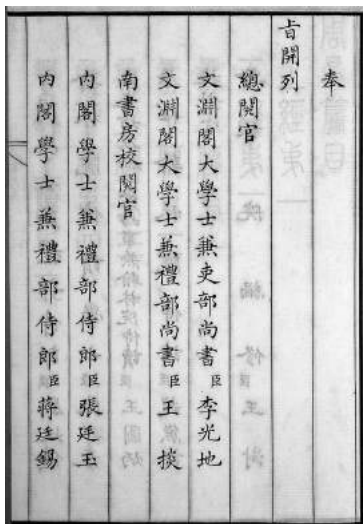 奉
旨開列
總閱官
文淵閣大學士兼吏部尚書臣李光地
文淵閣大學士兼禮部尚書臣王掞
南書房校閱官
內閣學士兼禮部侍郎臣張廷玉
內閣學士兼禮部侍郎臣蔣廷錫